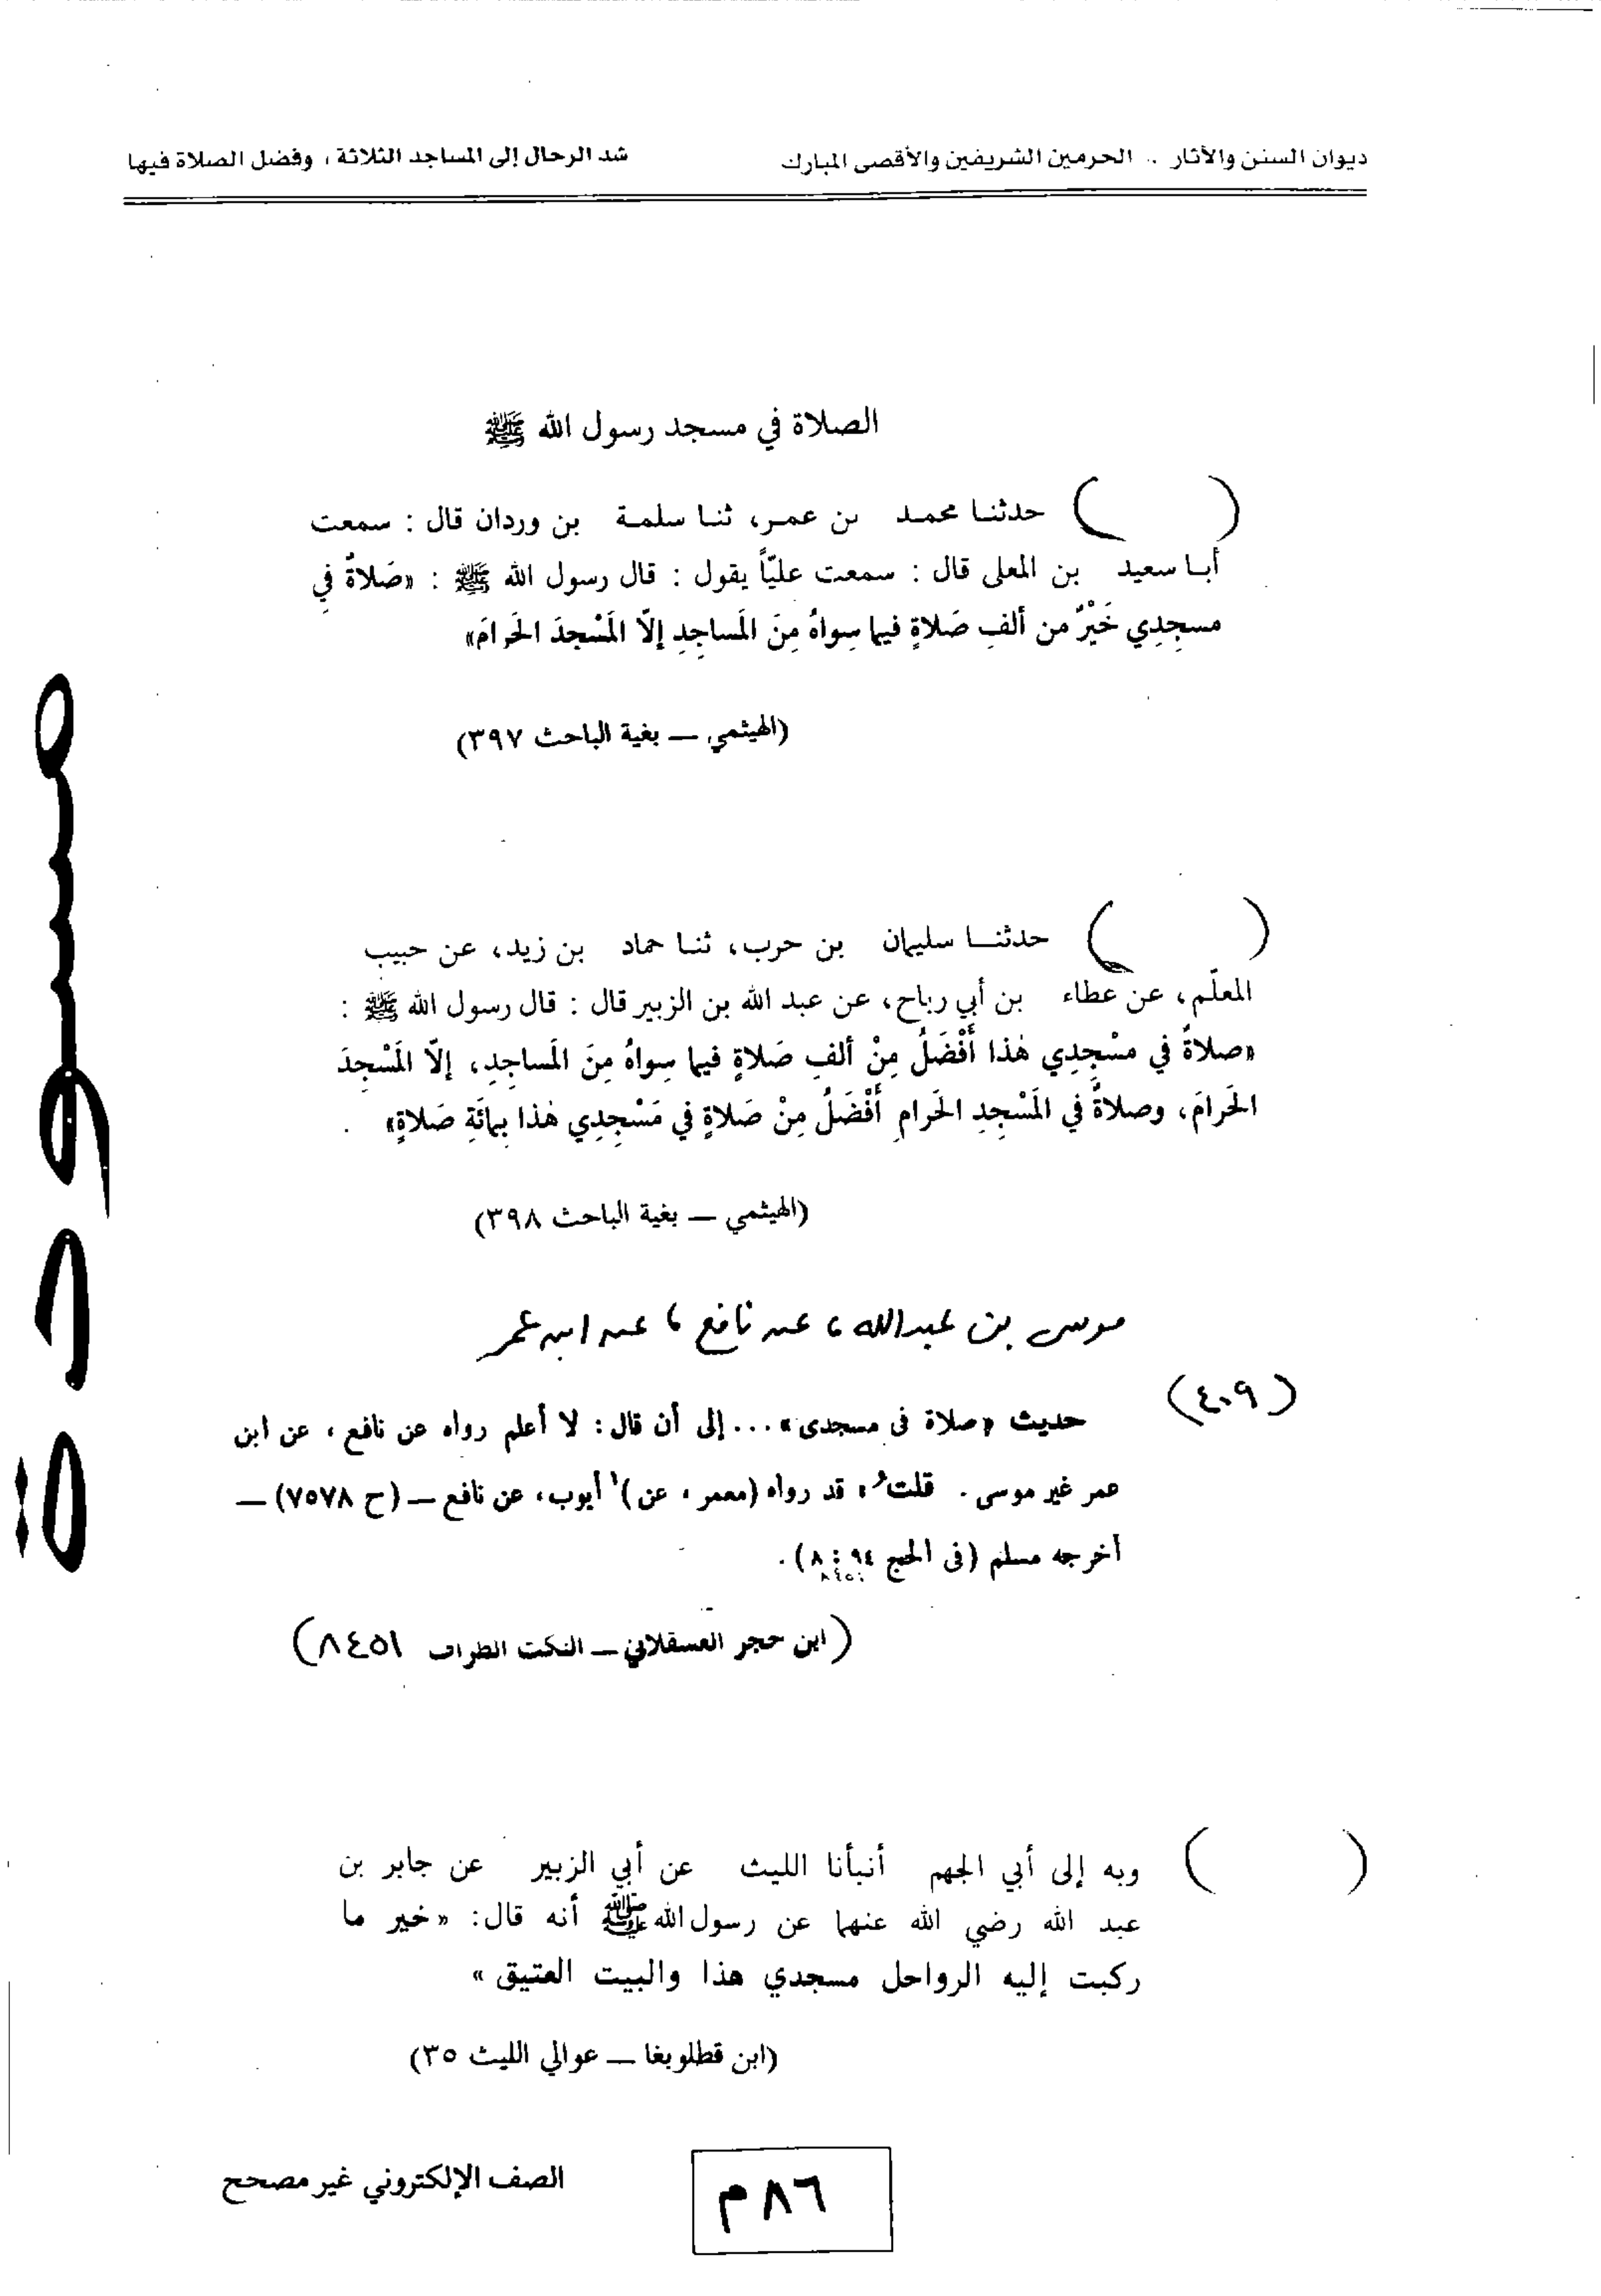 ديوان السنن والأثار .. الحرمين الشريفين والأقصى المبارك
شد الرحال إلى المساجد الثلاثة ، وفضل الصلاة فيها
الصلاة في مسجد رسول الله ﷺ
( ) حدثنا محمد بن عمر، ثنا سلمة بن وردان قال : سمعت
أبا سعيد بن المعلى قال : سمعت عليّاً يقول : قال رسول الله ﷺ : «صَلاةٌ في
مسجِدِي خَيْرٌ من ألفِ صَلاةٍ فيما سِواهُ مِنَ المَساجِدِ إلاّ المَسْجِدَ الحَرامَ»
(الهيثمي — بغية الباحث ٣٩٧)
( ) حدثنا سليمان بن حرب، ثنا حماد بن زيد، عن حبيب
المعلّم، عن عطاء بن أبي رباح، عن عبد الله بن الزبير قال : قال رسول الله ﷺ :
«صلاةٌ في مسْجِدِي هٰذا أَفْضَلُ مِنْ ألفِ صَلاةٍ فيما سِواهُ مِنَ المَساجِدِ، إلاّ المَسْجِدَ
الحَرامَ، وصلاةٌ في المَسْجِدِ الحَرامِ أَفْضَلُ مِنْ صَلاةٍ في مَسْجِدِي هٰذا بِمائَةِ صَلاةٍ» .
(الهيثمي — بغية الباحث ٣٩٨)
موسى بن عبدالله، عن نافع، عن ابن عمر
(٤٠٩) حديث «صلاة فى مسجدى» ... إلى أن قال : لا أعلم رواه عن نافع ، عن ابن
عمر غير موسى . قلت ُ: قد رواه (معمر ، عن)١ أيوب، عن نافع — (ح ٧٥٧٨) —
أخرجه مسلم (فى الحج ٩٤ : ٨) .
(ابن حجر العسقلاني — النكت الظراف ٨٤٥١)
( ) وبه إلى أبي الجهم أنبأنا الليث عن أبي الزبير عن جابر بن
عبد الله رضي الله عنهما عن رسول الله ﷺ أنه قال: « خير ما
ركبت إليه الرواحل مسجدي هذا والبيت العتيق »
(ابن قطلوبغا — عوالي الليث ٣٥)
٨٦م
الصف الإلكتروني غير مصحح
مسودة